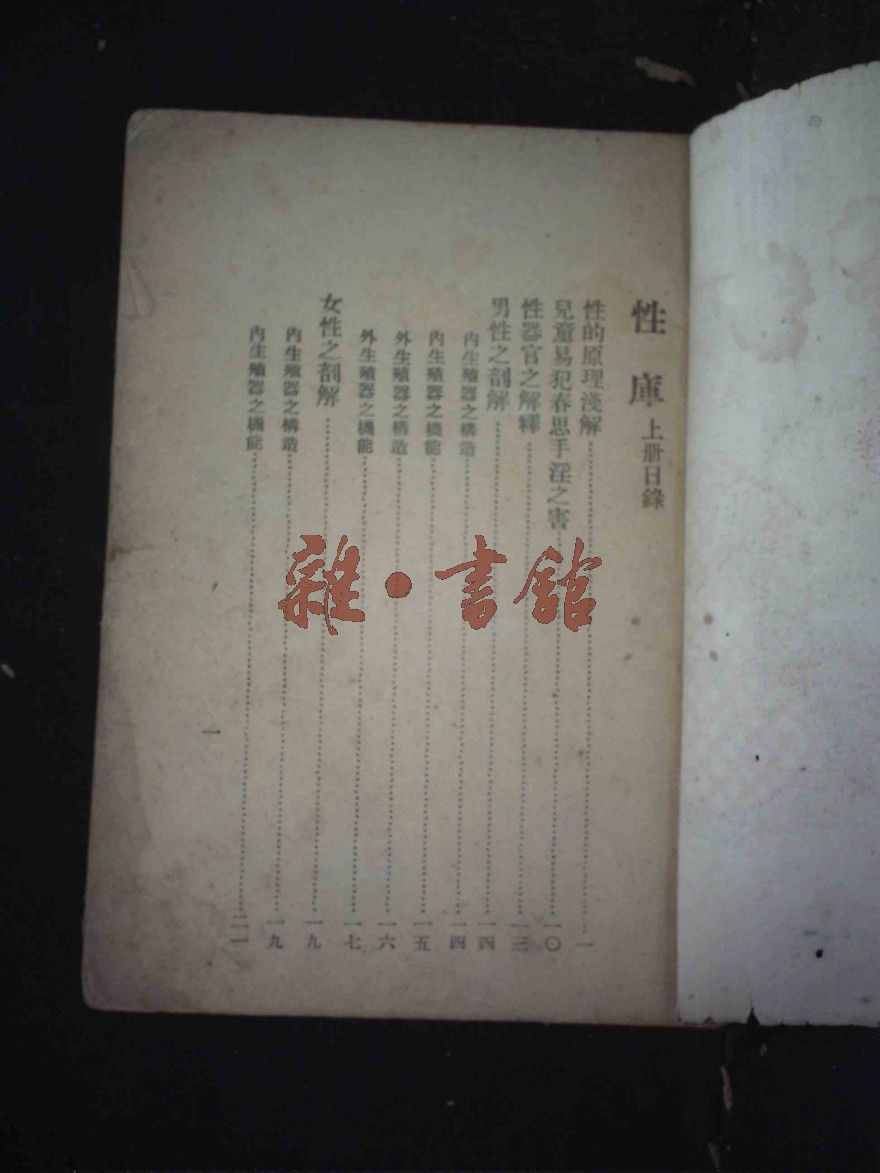 性庫上册目錄
性的原理淺解……一
兒童易犯春思手淫之害……一〇
性器官之解釋……一三
男性之剖解……一四
內生殖器之構造……一四
內生殖器之機能……一五
外生殖器之構造……一六
外生殖器之機能……一七
女性之剖解……一九
內生殖器之構造……一九
內生殖器之機能……二一
一
雜·書館